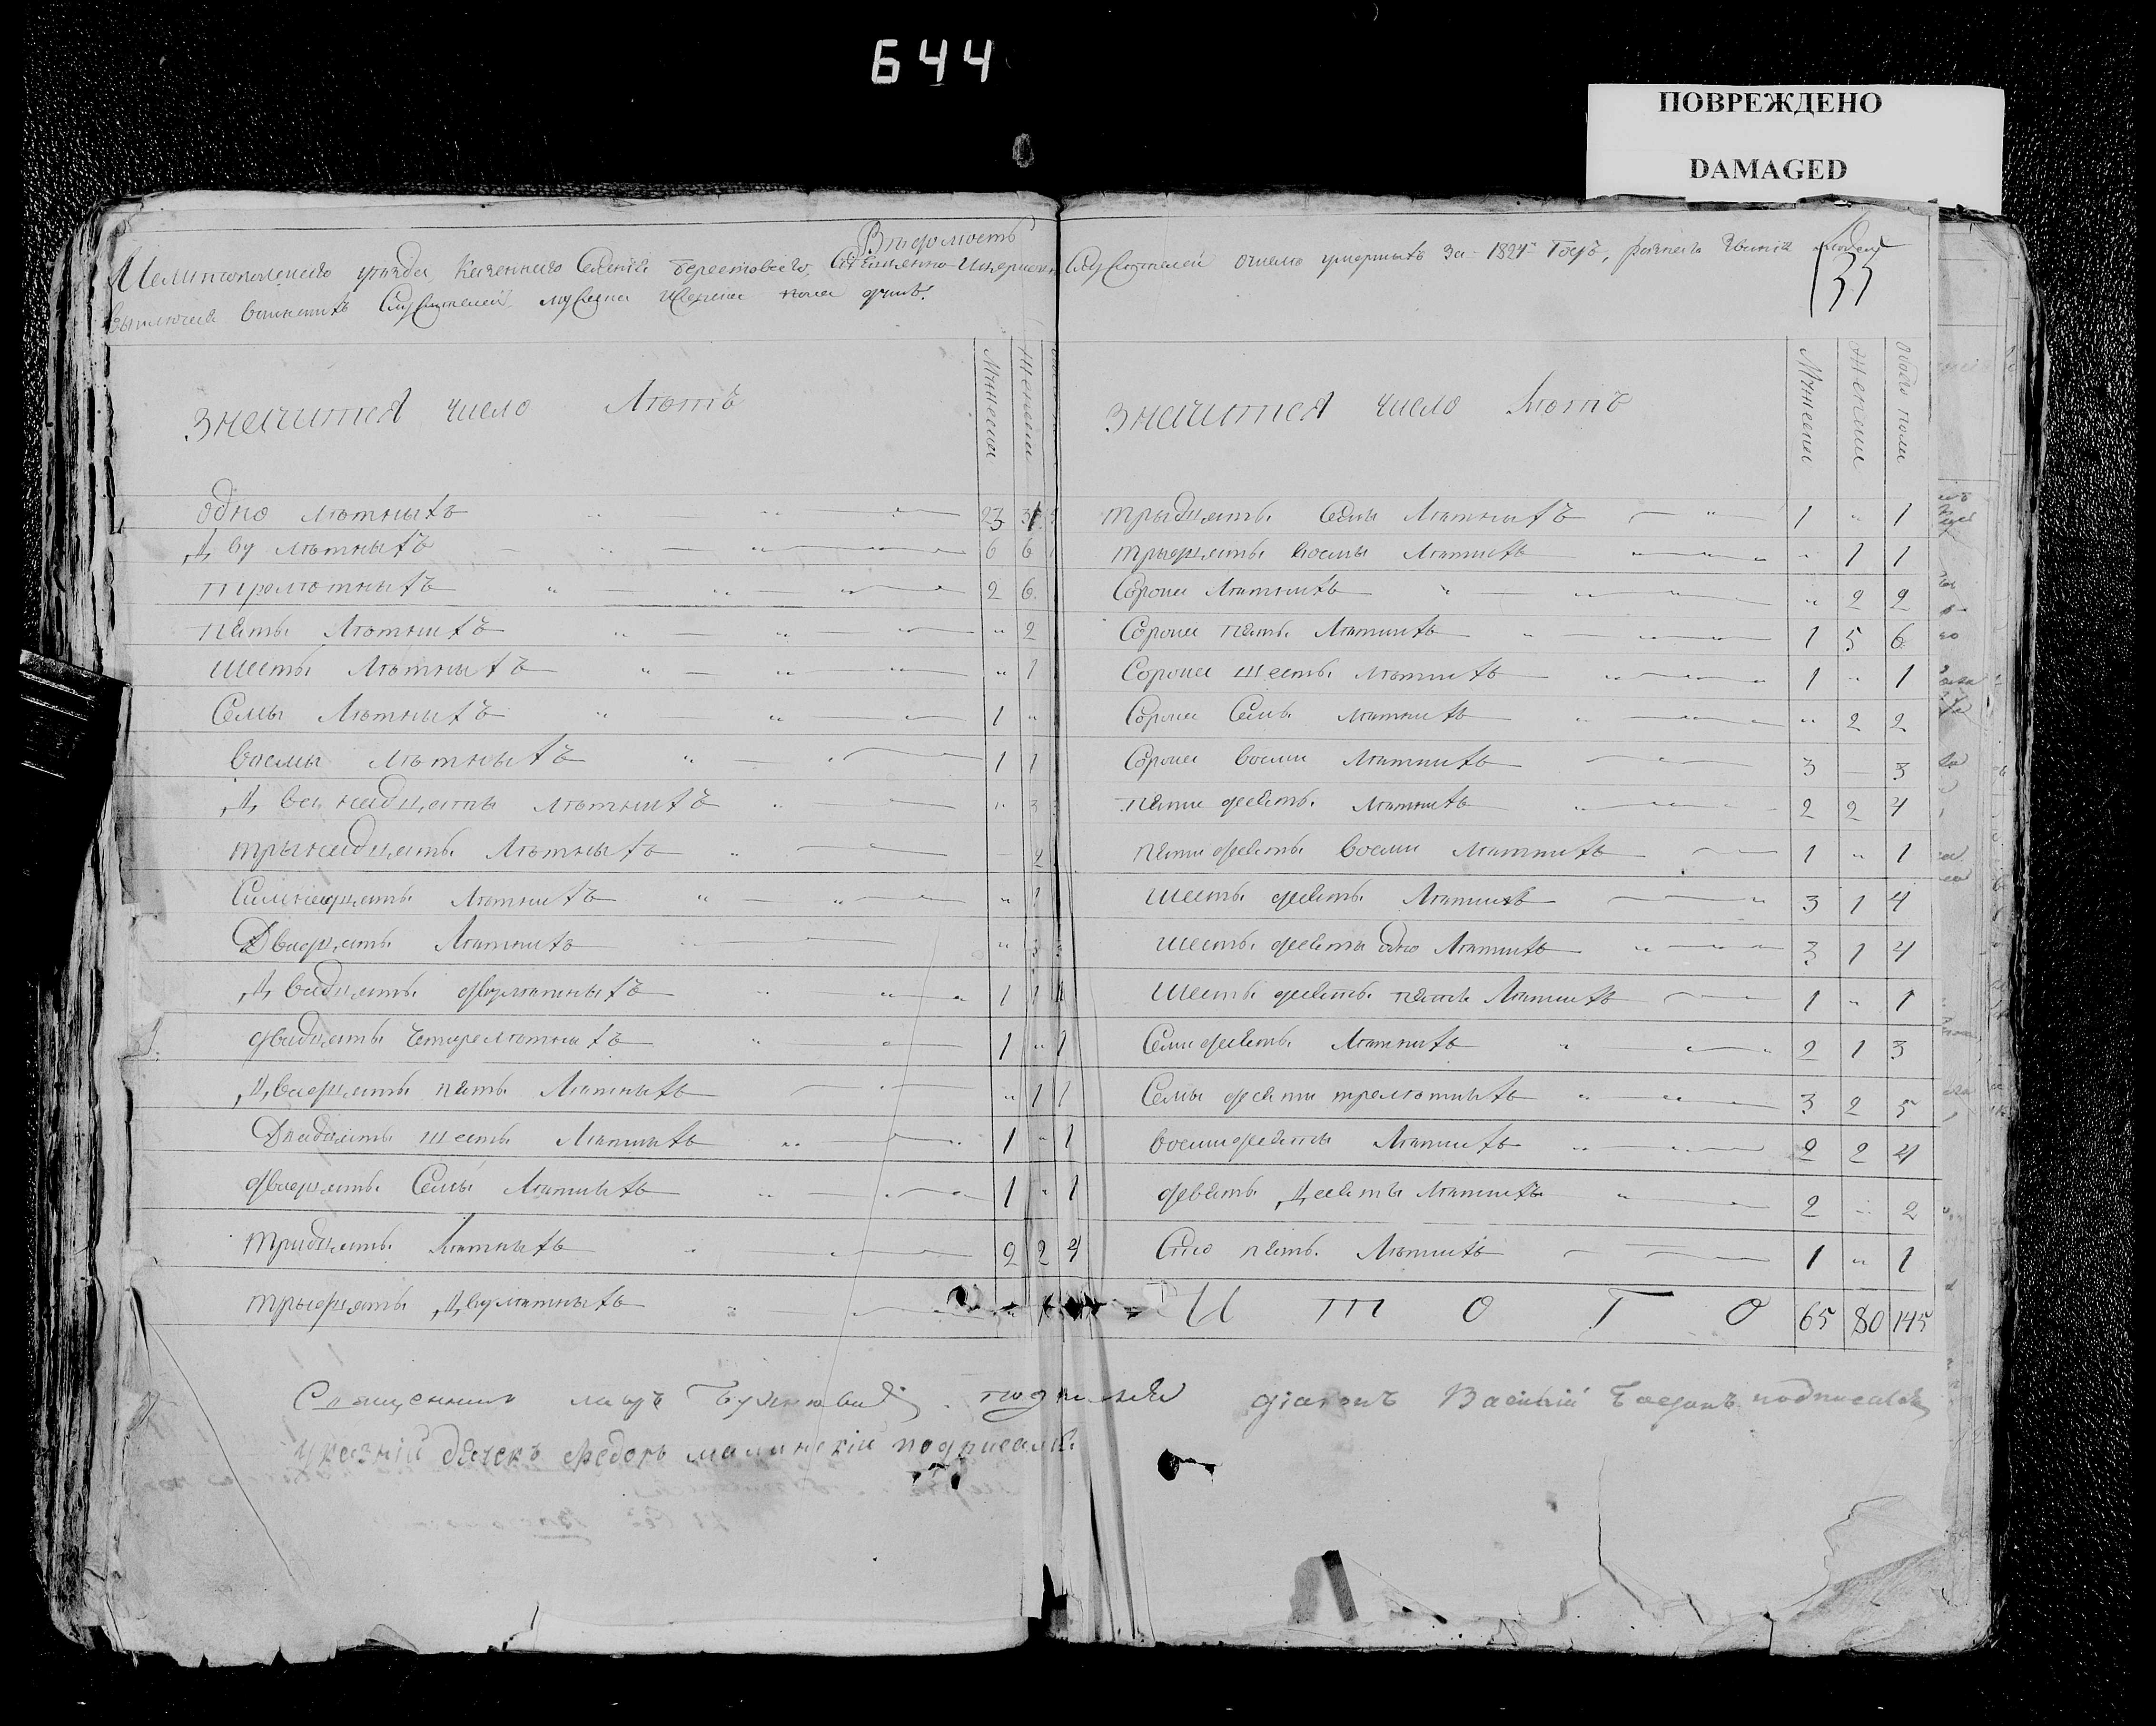 644
ПОВРЕЖДЕНО
DAMAGED
Вѣдомость
Мелитопольского уѣзда казенного Селенія берестового, Священно Церковно Служителей очисле умершихъ За 1824 Годъ, разнаго Званія людей
выключая воинскихъ Служителей мужеска иженска пола душъ.
35
Значится число Лѣтъ Мужеска Женска
одно лѣтныхъ 23 31
Двулѣтныхъ 6 6
трелѣтныхъ 2 6
пять Лѣтныхъ " 2
шесть Лѣтныхъ " 1
Семь Лѣтныхъ 1 "
восмы лѣтныхъ 1 1
Двенадцать лѣтныхъ " 3
трынадцать Лѣтныхъ 2
Симнадцать Лѣтныхъ " 1
Двадцать Лѣтныхъ " 3 3
Двадцать двулѣтныхъ 1 1
двадцать Четирелѣтныхъ 1 " 1
Двадцать пять Лѣтныхъ " 1 1
Двадцать шесть Лѣтныхъ 1 " 1
двадцать Семы Лѣтныхъ 1 " 1
тридцать Лѣтныхъ 2 2 4
трыдцать Двулѣтныхъ "
Значится число Лѣтъ Мужеска Женска Обоего пола
трыдцать Семы Лѣтныхъ 1 " 1
трыдцать восмы Лѣтныхъ " 1 1
Сорока Лѣтныхъ " 2 2
Сорока пять Лѣтныхъ 1 5 6
Сорока шесть лѣтныхъ 1 " 1
Сорока Семь лѣтныхъ " 2 2
Сорока восми Лѣтныхъ 3 — 3
пятидесять Лѣтныхъ 2 2 4
пятидесять восми Лѣтныхъ 1 " 1
шесть десять Лѣтныхъ 3 1 4
шесть десять одно Лѣтныхъ 3 1 4
Шесть десять пяти Лѣтныхъ 1 " 1
Семидесять Лѣтныхъ 2 1 3
Семы десяти трелѣтныхъ 3 2 5
восмидесяты Лѣтныхъ 2 2 4
девять Десяты Лѣтныхъ 2 " 2
Сто пять Лѣтныхъ 1 " 1
Итого 65 80 145
Священникъ
діаконъ Василій подписался
указній дячекъ федоръ малинскій подписался